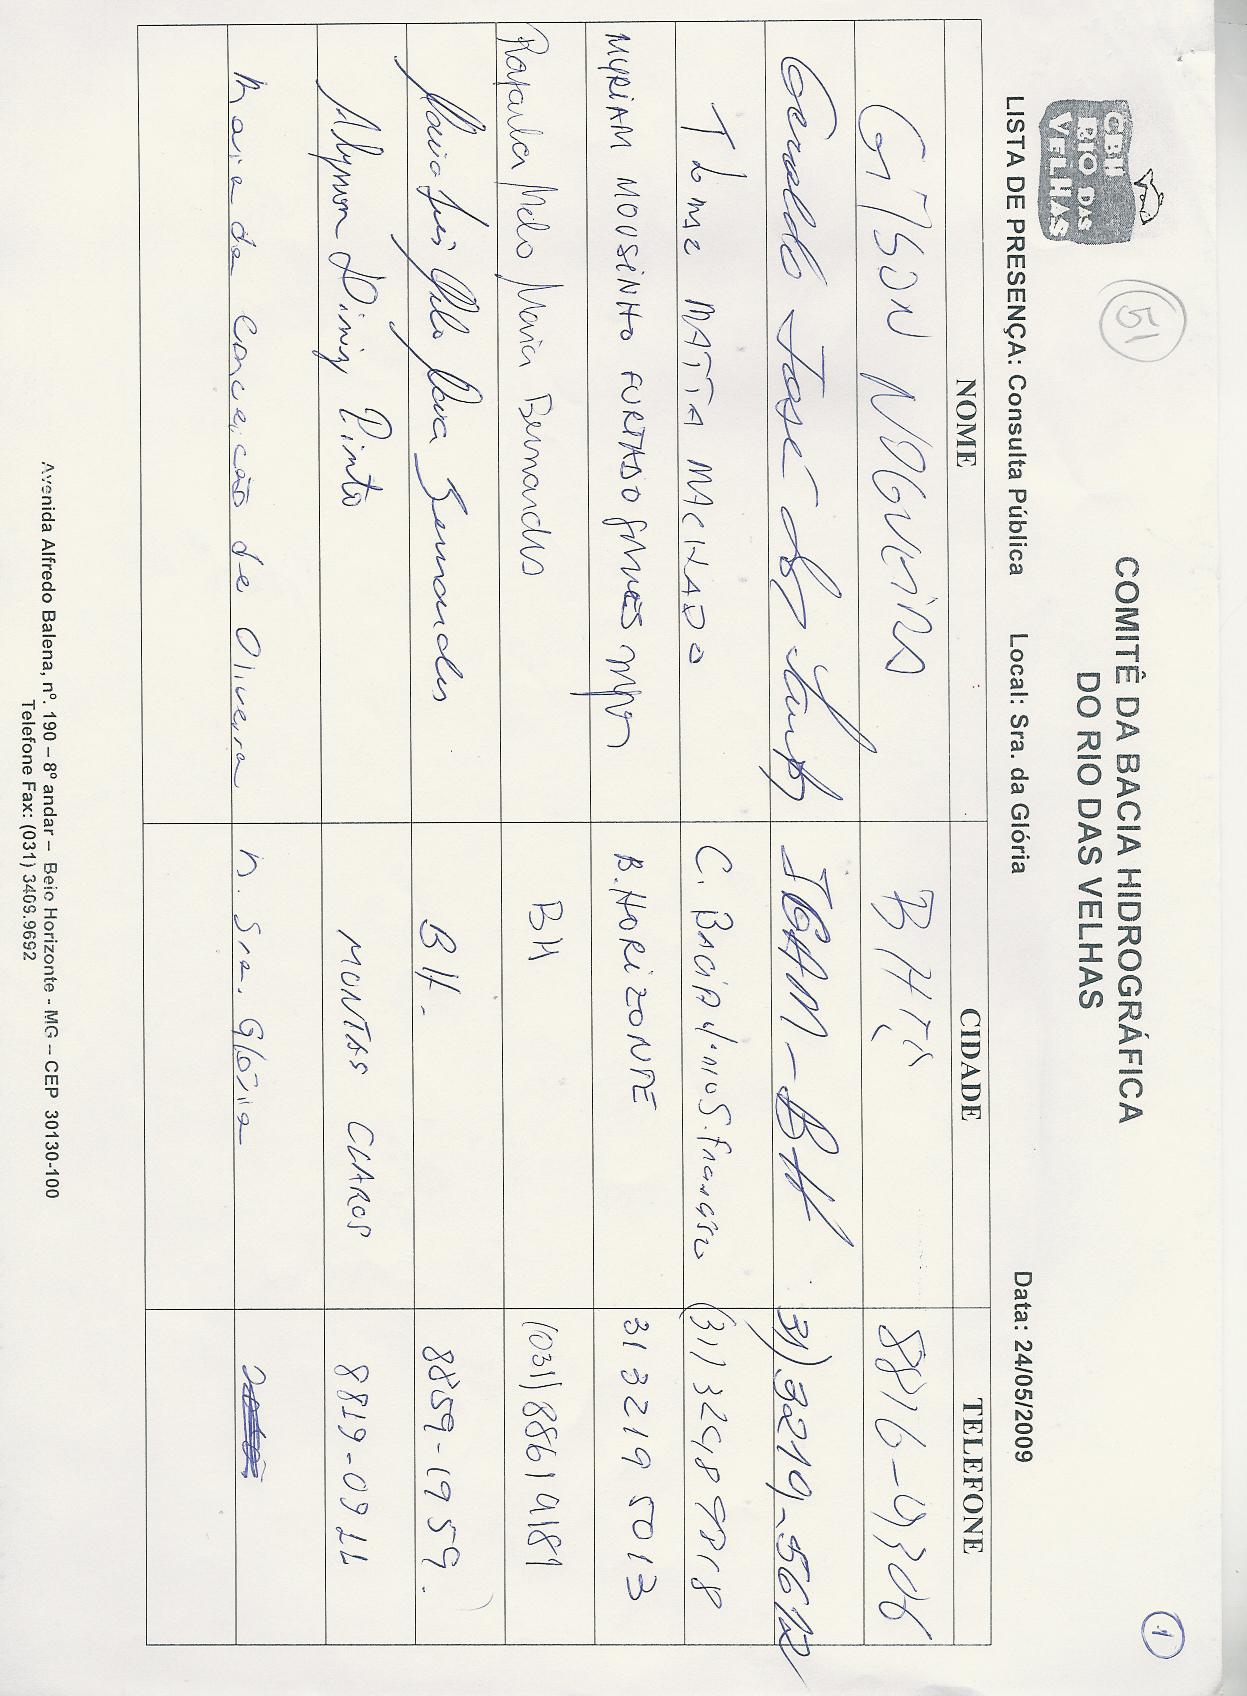 CBH
RIO DAS
VELHAS
51
1
COMITÊ DA BACIA HIDROGRÁFICA
DO RIO DAS VELHAS
LISTA DE PRESENÇA: Consulta Pública Local: Sra. da Glória Data: 24/05/2009
NOME CIDADE TELEFONE
Gilson Nogueira 8816-4306
Geraldo José dos Santos IGAM-BH 31)3219-5612
MATTA MACHADO C. BACIA S. Francisco (31)
MYRIAM MOUSINHO FURTADO GOMES B. HORIZONTE 313219 5013
Rafaela Melo Maria Bernardes BH (031)88619181
Melo Bernardes BH. 8859-1959.
Diniz Pinto MONTES CLAROS 8819-0911
Maria da Conceição de Oliveira N. Sra. Glória
Avenida Alfredo Balena, nº. 190 – 8º andar – Belo Horizonte - MG – CEP 30130-100
Telefone Fax: (031) 3409.9692